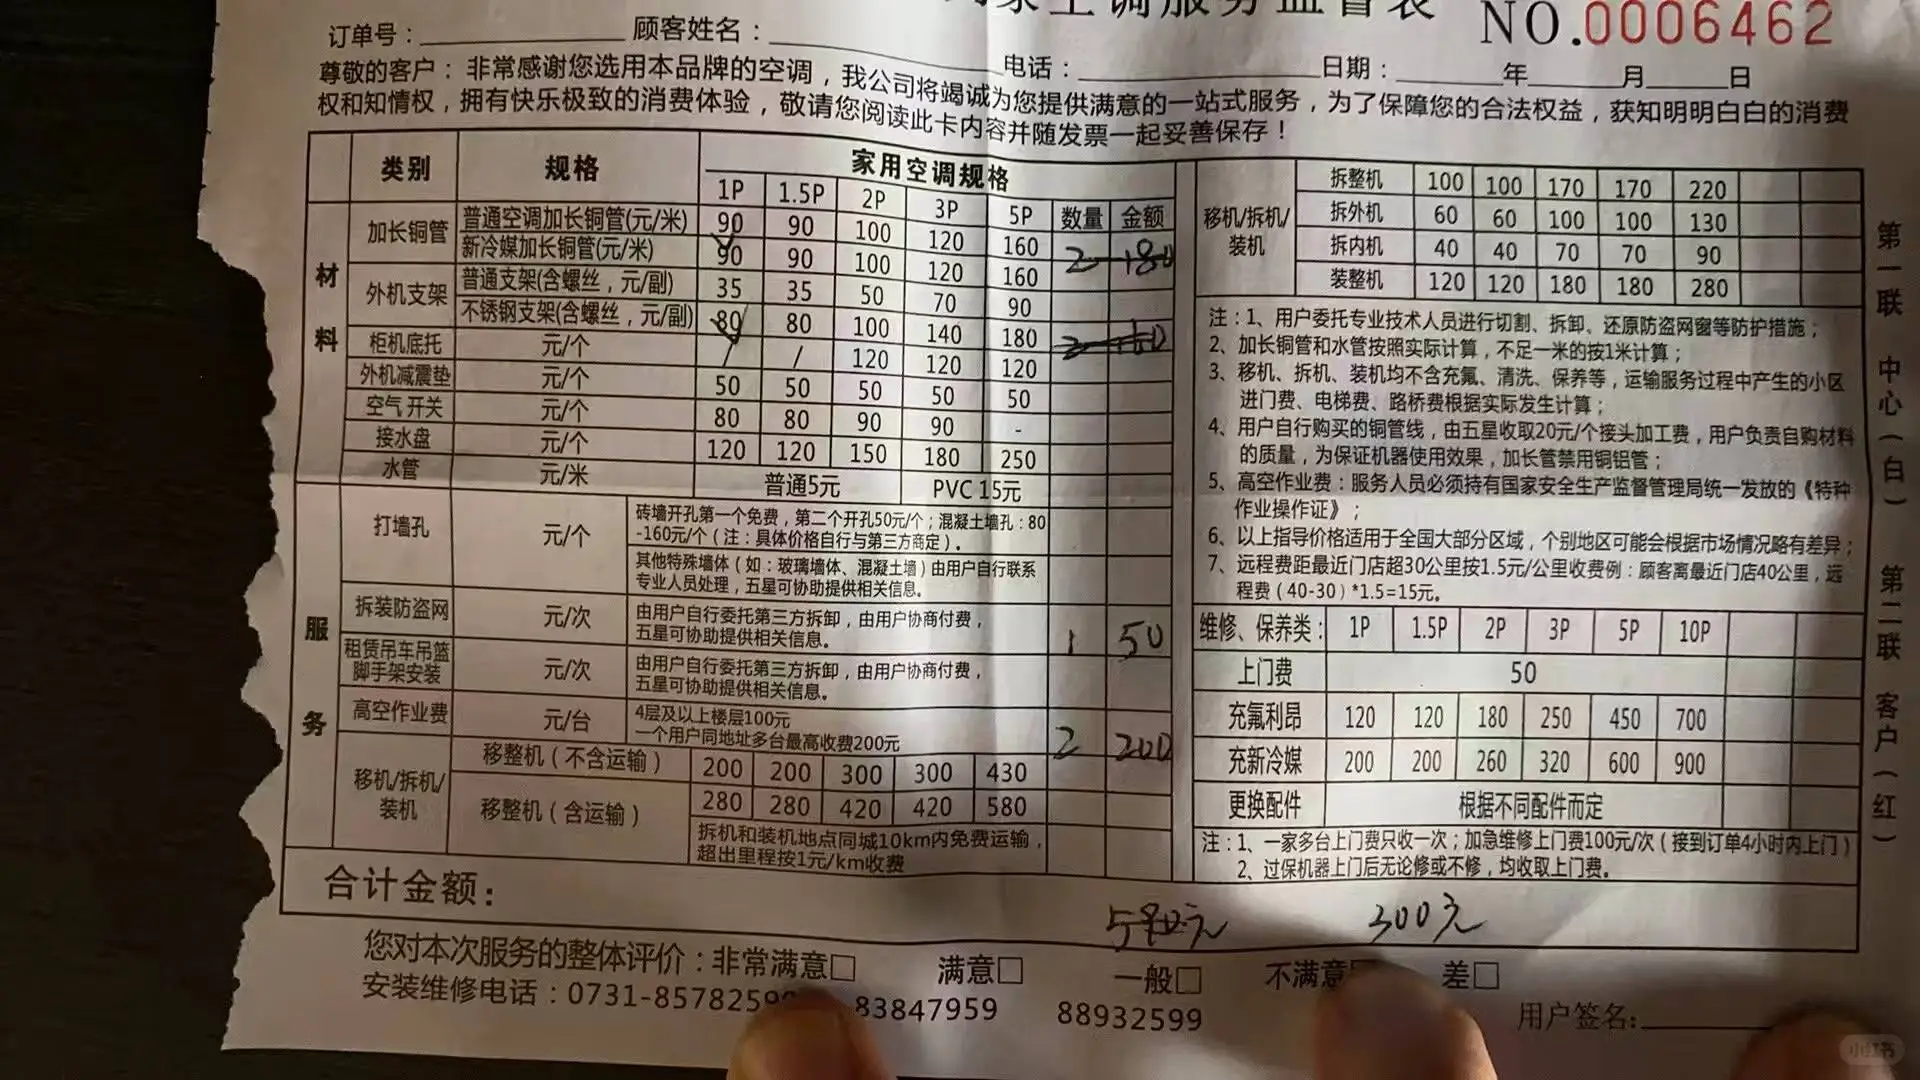 家空调服务监督表
NO.0006462
订单号：
顾客姓名：
电话：
日期： 年 月 日
尊敬的客户：非常感谢您选用本品牌的空调，我公司将竭诚为您提供满意的一站式服务，为了保障您的合法权益，获知明明白白的消费
权和知情权，拥有快乐极致的消费体验，敬请您阅读此卡内容并随发票一起妥善保存！
类别 规格 家用空调规格
1P 1.5P 2P 3P 5P 数量 金额
材料
加长铜管 普通空调加长铜管(元/米) 90 90 100 120 160
新冷媒加长铜管(元/米) 90 90 100 120 160 2 180
外机支架 普通支架(含螺丝，元/副) 35 35 50 70 90
不锈钢支架(含螺丝，元/副) 80 80 100 140 180 2 160
柜机底托 元/个 / / 120 120 120
外机减震垫 元/个 50 50 50 50 50
空气开关 元/个 80 80 90 90 -
接水盘 元/个 120 120 150 180 250
水管 元/米 普通5元 PVC 15元
服务
打墙孔 元/个 砖墙开孔第一个免费，第二个开孔50元/个；混凝土墙孔：80
-160元/个（注：具体价格自行与第三方商定）。
其他特殊墙体（如：玻璃墙体、混凝土墙）由用户自行联系
专业人员处理，五星可协助提供相关信息。
拆装防盗网 元/次 由用户自行委托第三方拆卸，由用户协商付费，
五星可协助提供相关信息。 1 50
租赁吊车吊篮
脚手架安装 元/次 由用户自行委托第三方拆卸，由用户协商付费，
五星可协助提供相关信息。
高空作业费 元/台 4层及以上楼层100元
一个用户同地址多台最高收费200元 2 200
移机/拆机/
装机
移整机（不含运输） 200 200 300 300 430
移整机（含运输） 280 280 420 420 580
拆机和装机地点同城10km内免费运输，
超出里程按1元/km收费
合计金额：
移机/拆机/
装机
拆整机 100 100 170 170 220
拆外机 60 60 100 100 130
拆内机 40 40 70 70 90
装整机 120 120 180 180 280
注：1、用户委托专业技术人员进行切割、拆卸、还原防盗网窗等防护措施；
2、加长铜管和水管按照实际计算，不足一米的按1米计算；
3、移机、拆机、装机均不含充氟、清洗、保养等，运输服务过程中产生的小区
进门费、电梯费、路桥费根据实际发生计算；
4、用户自行购买的铜管线，由五星收取20元/个接头加工费，用户负责自购材料
的质量，为保证机器使用效果，加长管禁用铜铝管；
5、高空作业费：服务人员必须持有国家安全生产监督管理局统一发放的《特种
作业操作证》；
6、以上指导价格适用于全国大部分区域，个别地区可能会根据市场情况略有差异；
7、远程费距最近门店超30公里按1.5元/公里收费例：顾客离最近门店40公里，远
程费（40-30）*1.5=15元。
维修、保养类： 1P 1.5P 2P 3P 5P 10P
上门费 50
充氟利昂 120 120 180 250 450 700
充新冷媒 200 200 260 320 600 900
更换配件 根据不同配件而定
注：1、一家多台上门费只收一次；加急维修上门费100元/次（接到订单4小时内上门）
2、过保机器上门后无论修或不修，均收取上门费。
590元 300元
您对本次服务的整体评价：非常满意□ 满意□ 一般□ 不满意 差□
安装维修电话：0731-8578259 83847959 88932599
用户签名：
第一联 中心（白） 第二联 客户（红）
小红书